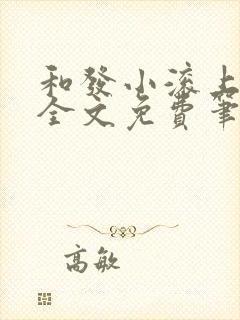 和發小滚上
全文免費筆
高敏